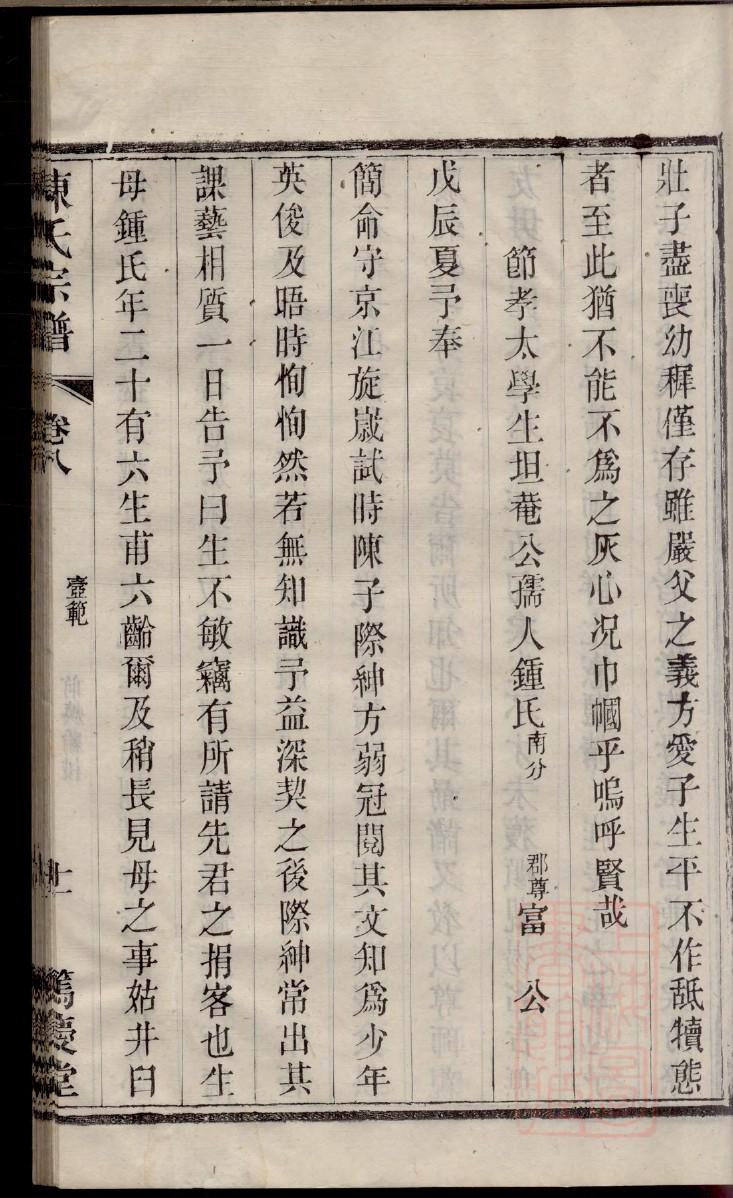 壯子盡喪幼穉僅存雖嚴父之義方愛子生平不作舐犢態
者至此猶不能不爲之灰心况巾幗乎嗚呼賢哉
節孝太學生坦菴公孺人鍾氏南分 郡尊富 公
戊辰夏予奉
簡命守京江旋歲試時陳子際紳方弱冠閱其文知爲少年
英俊及晤時恂恂然若無知識予益深契之後際紳常出其
課藝相質一日告予曰生不敏竊有所請先君之捐客也生
母鍾氏年二十有六生甫六齡爾及稍長見母之事姑井臼
陳氏宗譜 卷八 壼範 十一 篤慶堂